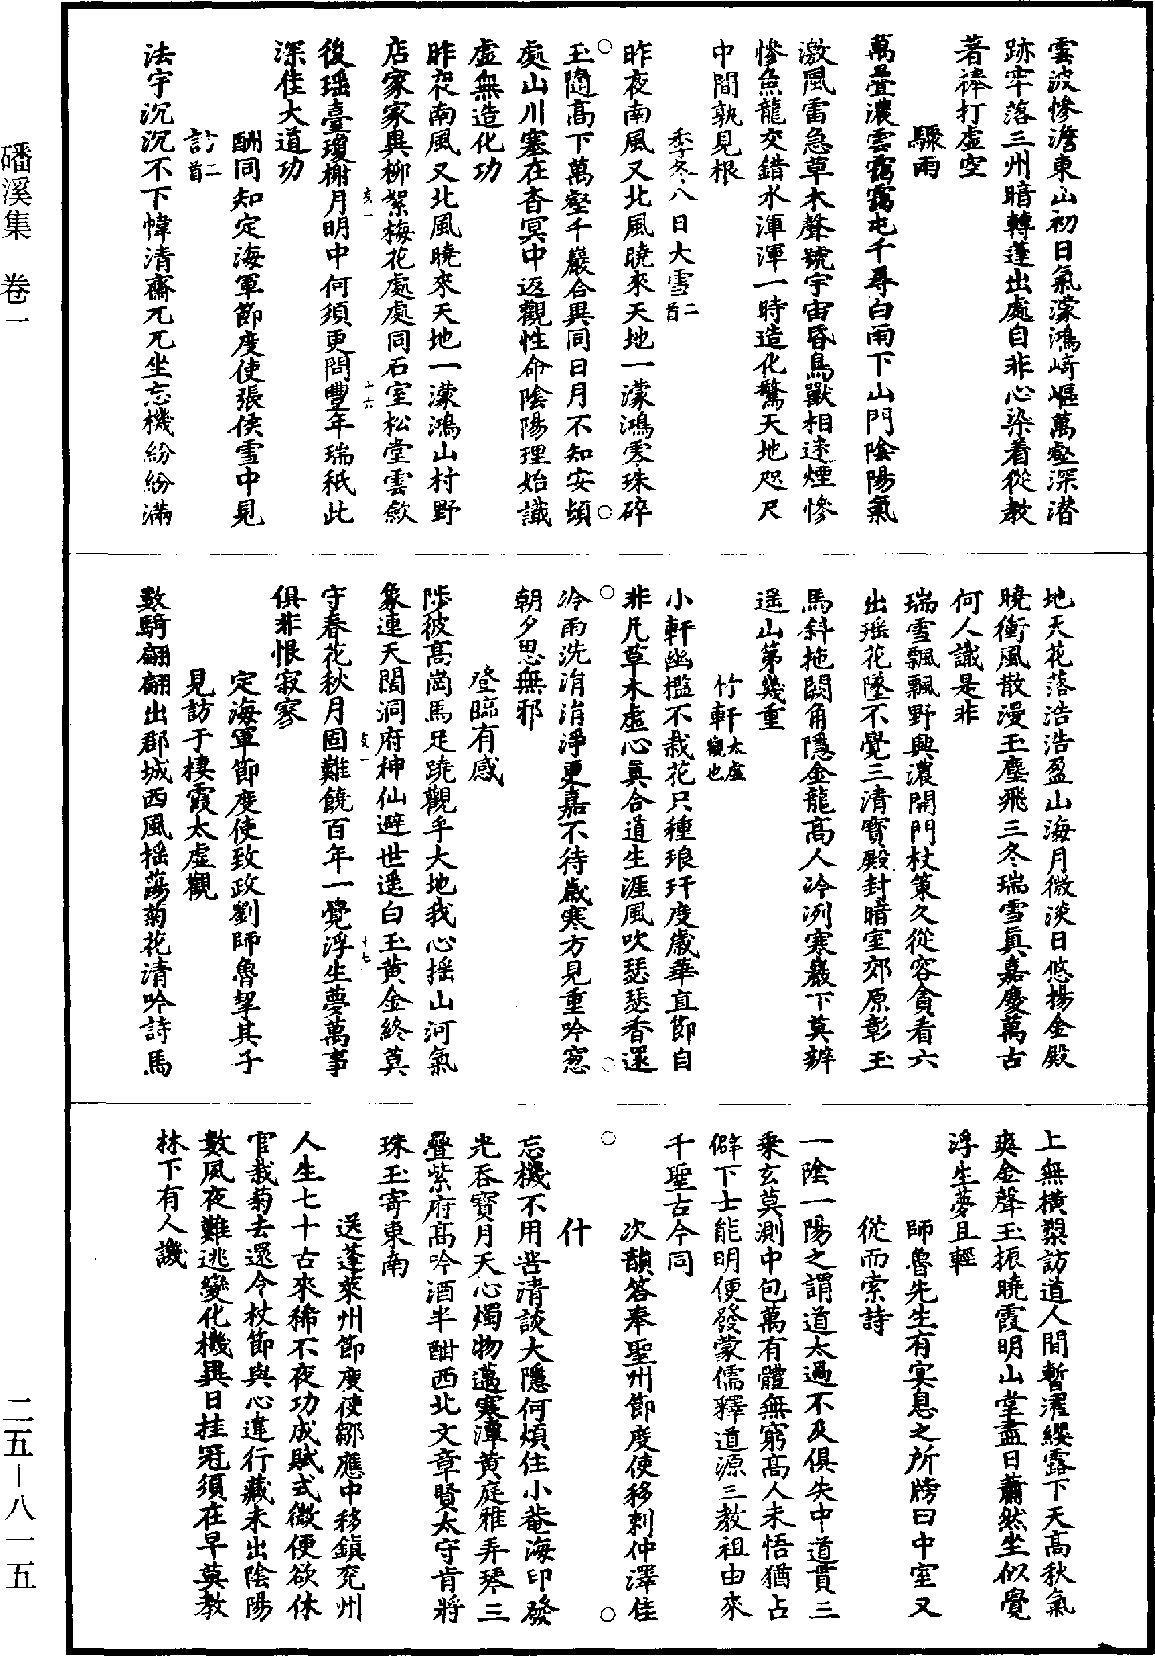 雲波慘澹東山初日氣濛鴻崎嶇萬壑深潛
跡牢落三州暗轉蓬出處自非心染着從教
著棒打虛空
驟雨
萬疊濃雲靄靄屯千尋白雨下山門陰陽氣
激風雷急草木聲號宇宙昏鳥獸相迷煙慘
慘魚龍交錯水渾渾一時造化驚天地咫尺
中間孰見根
季冬八日大雪二首
昨夜南風又北風曉來天地一濛鴻零珠碎
玉隨高下萬壑千巖合異同日月不知安頓
處山川塞在杳冥中返觀性命陰陽理始識
虛無造化功
昨夜南風又北風曉來天地一濛鴻山村野
店家家與柳絮梅花處處同石室松堂雲歛
後瑶臺瓊榭月明中何須更問豐年瑞秪此
深佳大道功
酬同知定海軍節度使張侯雪中見
訪二首
法宇沉沉不下幃清齋兀兀坐忘機紛紛滿
地天花落浩浩盈山海月微淡日悠揚金殿
曉衝風散漫玉塵飛三冬瑞雪真嘉慶萬古
何人識是非
瑞雪飄飄野興濃開門杖策久從容貪看六
出瑶花墜不覺三清寶殿封暗室郊原彰玉
馬斜拖闘角隱金龍高人冷洌寒巖下莫辨
遥山第幾重
竹軒太虛觀也
小軒幽檻不栽花只種琅玕度歲華直節自
非凡草木虛心真合道生涯風吹瑟瑟香還
冷雨洗涓涓淨更嘉不待歲寒方見重吟窓
朝夕思無邪
登臨有感
陟彼高崗馬足跷觀乎大地我心摇山河氣
象連天闊洞府神仙避世遥白玉黄金終莫
守春花秋月固難饒百年一覺浮生夢萬事
俱非恨寂寥
定海軍節度使致政劉師魯挈其子
見訪于棲霞太虛觀
數騎翩翩出郡城西風摇蕩菊花清吟詩馬
上無橫槊訪道人間暫濯纓露下天高秋氣
爽金聲玉振曉霞明山堂盡日蕭然坐似覺
浮生夢且輕
師魯先生有宴息之所牓曰中室又
從而索詩
一陰一陽之謂道太過不及俱失中道貫三
乘玄莫測中包萬有體無窮高人未悟猶占
僻下士能明便發蒙儒釋道源三教祖由來
千聖古今同
次韻答奉聖州節度使移剌仲澤佳
什
忘機不用苦清談大隱何煩住小菴海印發
光吞寶月天心燭物邁寒潭黄庭雅弄琴三
疊紫府高吟酒半酣西北文章賢太守肯將
珠玉寄東南
送蓬萊州節度使鄒應中移鎮兖州
人生七十古來稀不夜功成賦式微便欲休
官栽菊去還今杖節與心違行藏未出陰陽
數風夜難逃變化機異日挂冠須在早莫教
林下有人譏
磻溪集　卷一
二五－八一五